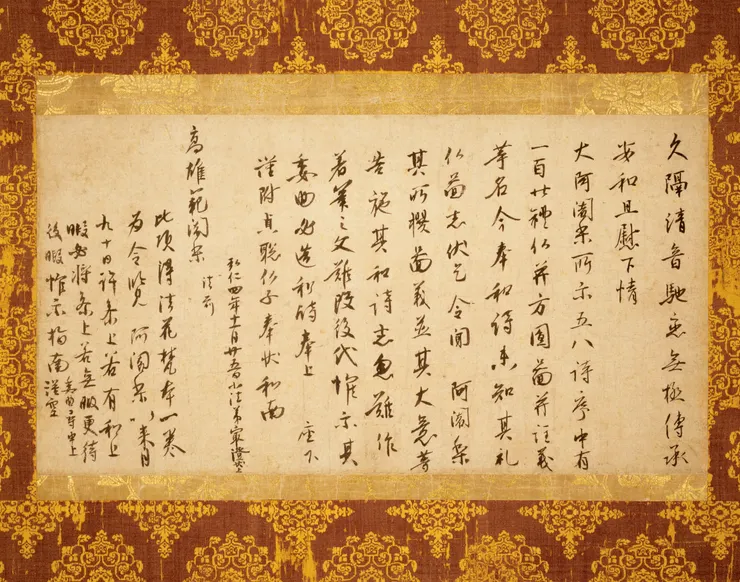 久隔清音馳恋無極傳承
安和且慰下情
大阿闍梨所示五八詩序中有
一百廿禮仏并方圓圖并註義
等名今奉和詩未知其礼
仏圖者伏乞令聞 阿闍梨
其所撰圖義並其大意等
告施其和詩者忽難作
著筆之文難改後代惟示其
委曲必造和詩奉上 座下
謹附貞聡仏子奉状和南
弘仁四年十一月廿五日小法弟最澄
高雄範闍梨 法前
此頃得法花梵本一巻
為令覧 阿闍梨以来月
九十日許参上若有和上
暇必将参上若無暇更待
後暇惟示指南 謹空